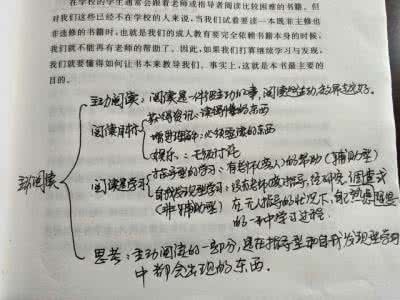 在学校的学生通常会跟着老师或指导者阅读比较困难的书籍。但
对我们这些已经不在学校的人来说，当我们试着要读一本既非主修也
非选修的书籍时，也就是我们的成人教育要完全依赖书籍本身的时候，
我们就不能再有老师的帮助了。因此，如果我们打算继续学习与发现，
我们就要懂得如何让书本来教导我们。事实上，这就是本书最主要的
目的。
主动阅读：阅读是一件主动的事，阅读越主动，效果越好。
获得资讯：读得懂的东西
阅读目标
增进理解：必须要读的东西
娱乐：无须讨论
主动阅读
指导型的学习：有老师（成人）的帮助（辅助型）
阅读是学习
自我发现型学习：没有老师的指导，经研究、调查或
（非辅助型）在无人指导的状况下，自己
的一种学习过程。
思考：主动阅读的一部分，是在指导型和自我发现型学习
中都会出现的东西。